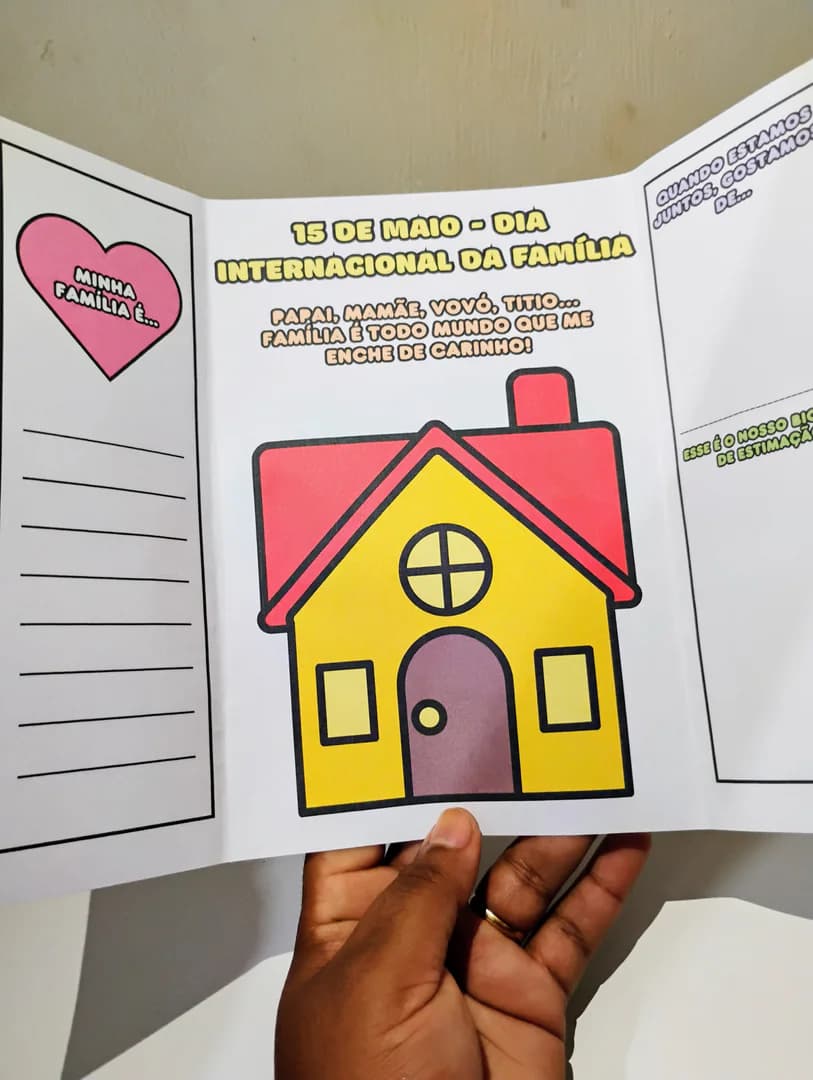 MINHA
FAMÍLIA É...
15 DE MAIO - DIA
INTERNACIONAL DA FAMÍLIA
PAPAI, MAMÃE, VOVÓ, TITIO...
FAMÍLIA É TODO MUNDO QUE ME
ENCHE DE CARINHO!
QUANDO ESTAMOS
JUNTOS, GOSTAMOS
DE...
ESSE É O NOSSO
DE